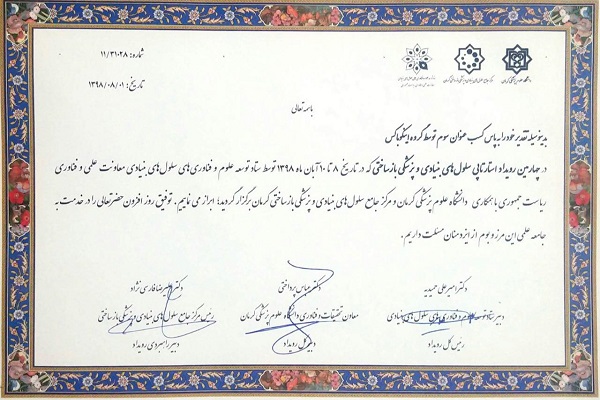 شماره: ۱۱/۳۱۰۲۸
تاریخ: ۱۳۹۸/۰۸/۰۱
باسمه تعالی
بدینوسیله تقدیر خود را به پاس کسب عنوان سوم توسط گروه اینکوباکس
در چهارمین رویداد استارتاپی سلول های بنیادی و پزشکی بازساختی که در تاریخ ۸ تا ۱۰ آبان ماه ۱۳۹۸ توسط ستاد توسعه علوم و فناوری های سلول های بنیادی معاونت علمی و فناوری
ریاست جمهوری با همکاری دانشگاه علوم پزشکی کرمان و مرکز جامع سلول های بنیادی و پزشکی بازساختی کرمان برگزار گردید؛ ابراز می نماییم. توفیق روز افزون حضرتعالی را در خدمت به
جامعه علمی این مرز و بوم از ایزد منان مسئلت داریم.
دکتر امیرعلی حمیدیه
دبیر ستاد توسعه علوم و فناوری های سلول های بنیادی
رئیس کل رویداد
دکتر عباس پرداختی
معاون تحقیقات و فناوری دانشگاه علوم پزشکی کرمان
دبیر کل رویداد
دکتر علیرضا فارسی نژاد
رئیس مرکز جامع سلول های بنیادی و پزشکی بازساختی
دبیر راهبردی رویداد